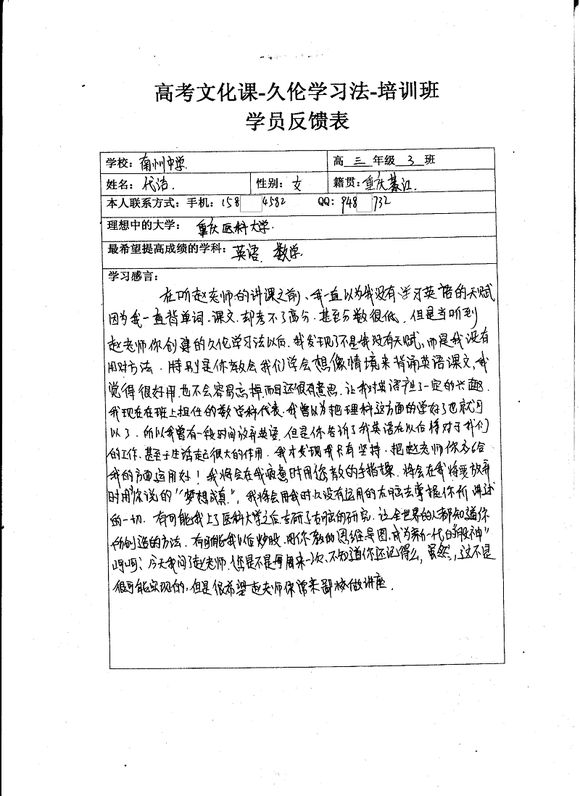 高考文化课-久伦学习法-培训班
学员反馈表
学校：南州中学 高 三 年级 3 班
姓名：代洁 性别：女 籍贯：重庆綦江
本人联系方式：手机：158 4582 QQ：948 732
理想中的大学：重庆医科大学
最希望提高成绩的学科：英语、数学
学习感言：
在听赵老师的讲课之前，我一直以为我没有学习英语的天赋
因为我一直背单词、课文，却考不了高分，甚至分数很低。但是当听到
赵老师你创建的久伦学习法以后，我发现了不是我没有天赋，而是我没有
用对方法。特别是你教会我们学会想像情境来背诵英语课文，我
觉得很好用，也不会容易忘掉，而且还很有意思，让我对英语产生了一定的兴趣。
我现在在班上担任的数学科代表，我曾以为把理科这方面的学好了也就可
以了，所以我曾有一段时间放弃英语，但是你告诉了我英语在以后将对于我们
的工作，甚至于生活起很大的作用，我才发现我只有坚持，把赵老师你教给
我的方面运用好！我将会在我疲惫时用您教的手指操，将会在我将要放弃
时用你说的“梦想成真”，我将会用我时以没有运用的方法去掌握你所讲述
的一切，有可能我上了医科大学之后去研了方法的研究，让全世界的人都知道你
所创造的方法，有可能我以后炒股，用你教的思维导图，成为新一代的“股神”
呵呵！今天我问了赵老师，您是不是每周来一次，不知道你还记得么，虽然，这不是
很可能实现的，但是很希望赵老师你常来鄙校做讲座。